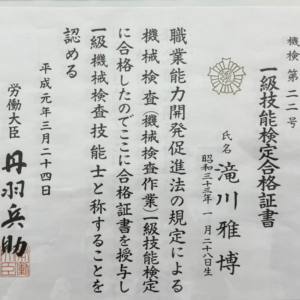 機検第二二号
一級技能検定合格証書
氏名
滝川雅博
昭和三十三年一月二十八日生
職業能力開発促進法の規定による
機械検査(機械検査作業)一級技能検定
に合格したのでここに合格証書を授与し
一級機械検査技能士と称することを
認める
平成元年三月二十四日
労働大臣
丹羽兵助